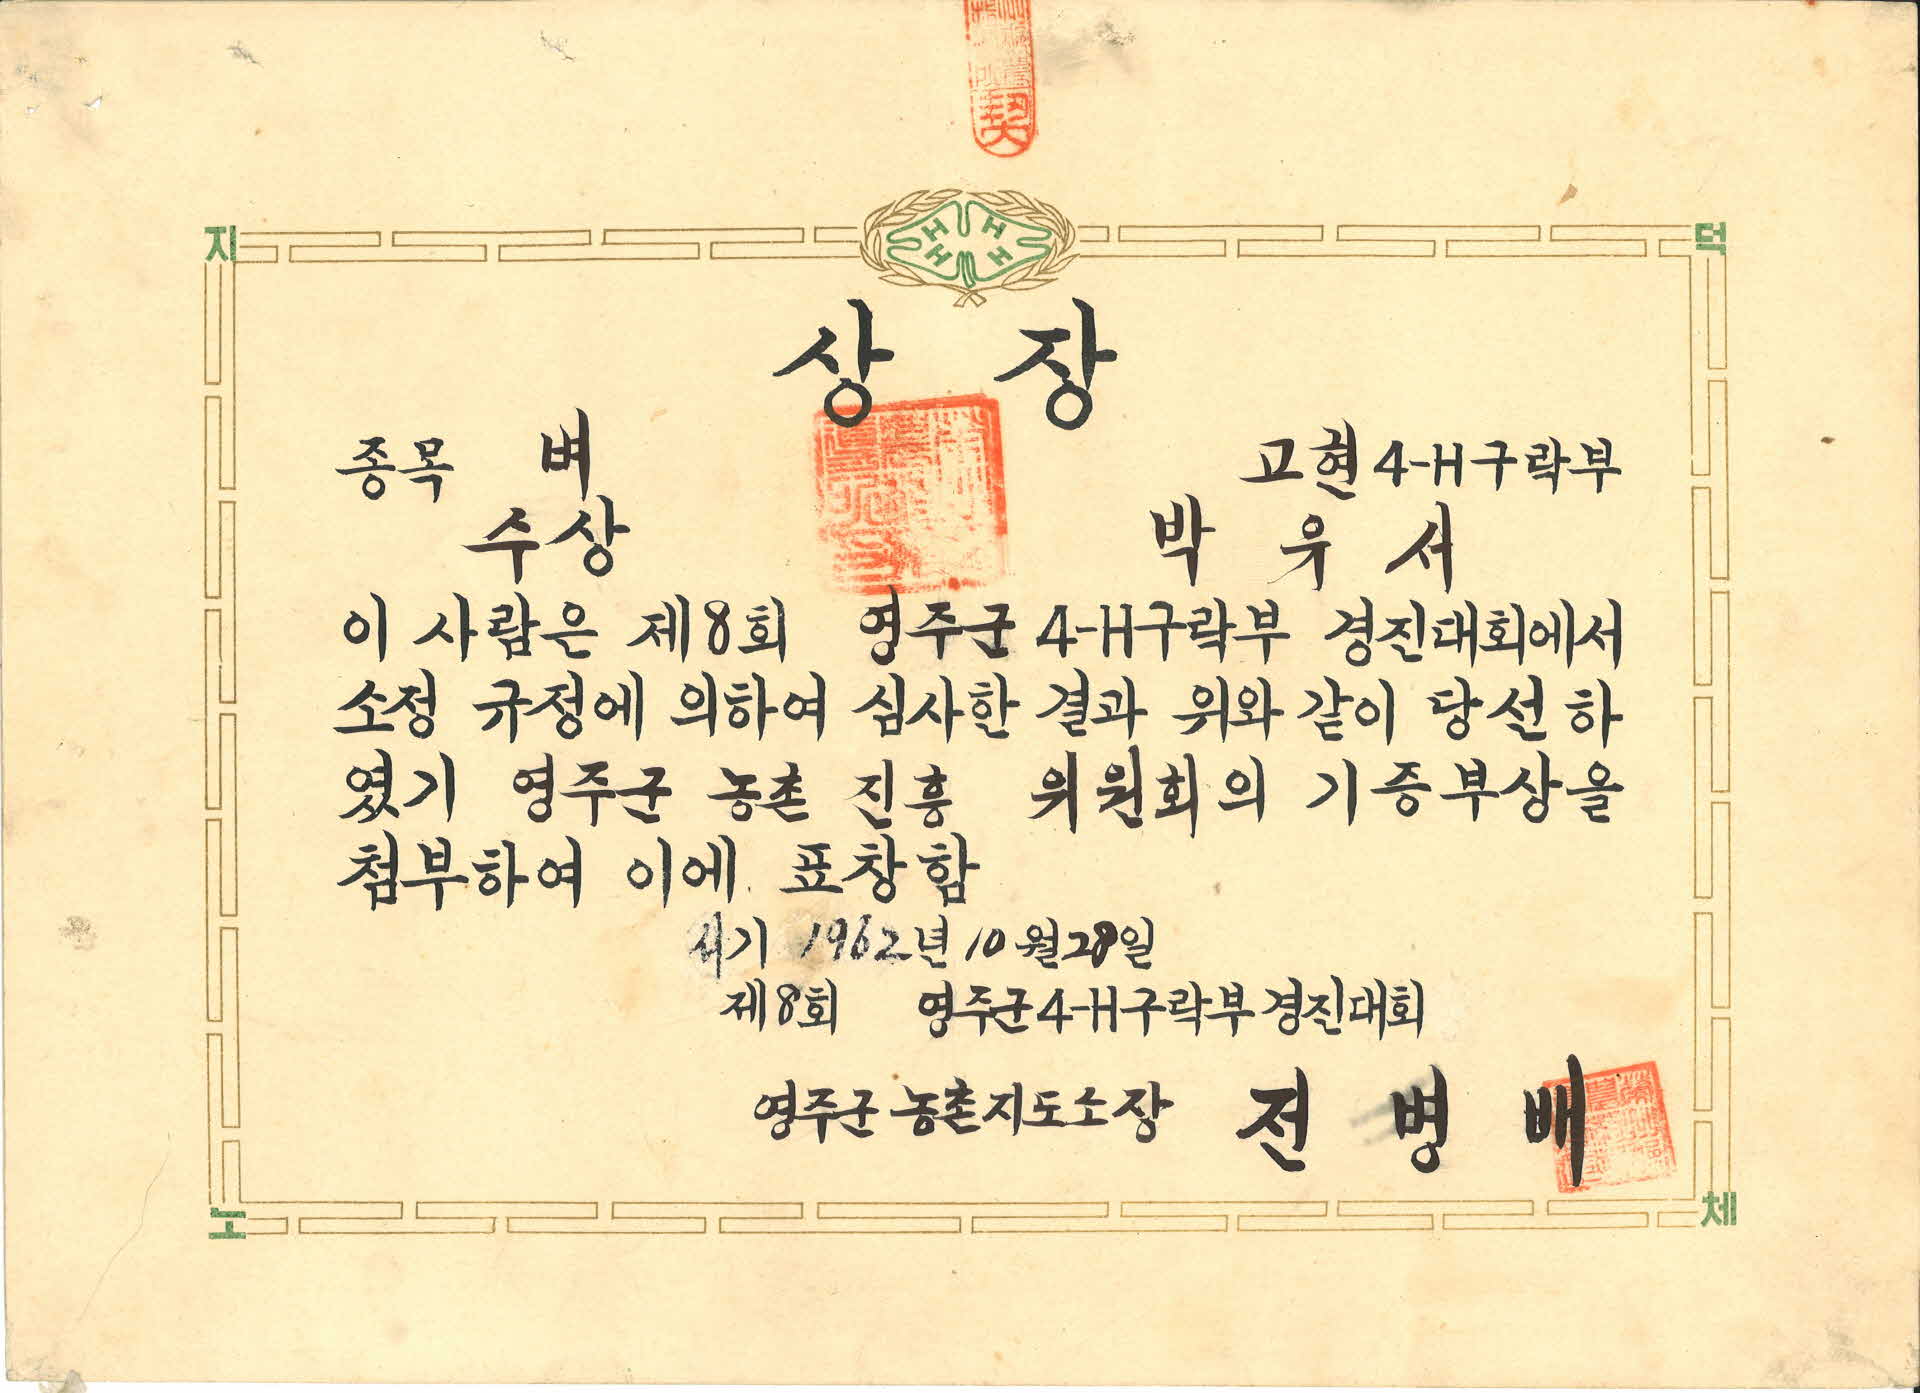 契
지 덕
H H H H
상 장
종목 벼 고현 4-H구락부
수상 박 우 서
이 사람은 제8회 영주군 4-H구락부 경진대회에서
소정 규정에 의하여 심사한 결과 위와 같이 당선하
였기 영주군 농촌 진흥 위원회의 기증부상을
첨부하여 이에 표창함
서기 1962년 10월 28일
제8회 영주군 4-H구락부 경진대회
영주군 농촌지도소장 전 병 배
노 체